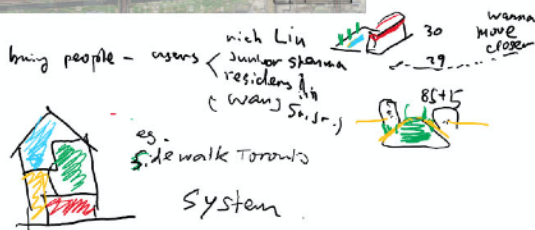 bring people - users
rich Liu
Junior Sharma
residens
(Wang Sr, Jr.)
30
29
wanna
move
closer
85+15
eg.
Sidewalk Toronto
System